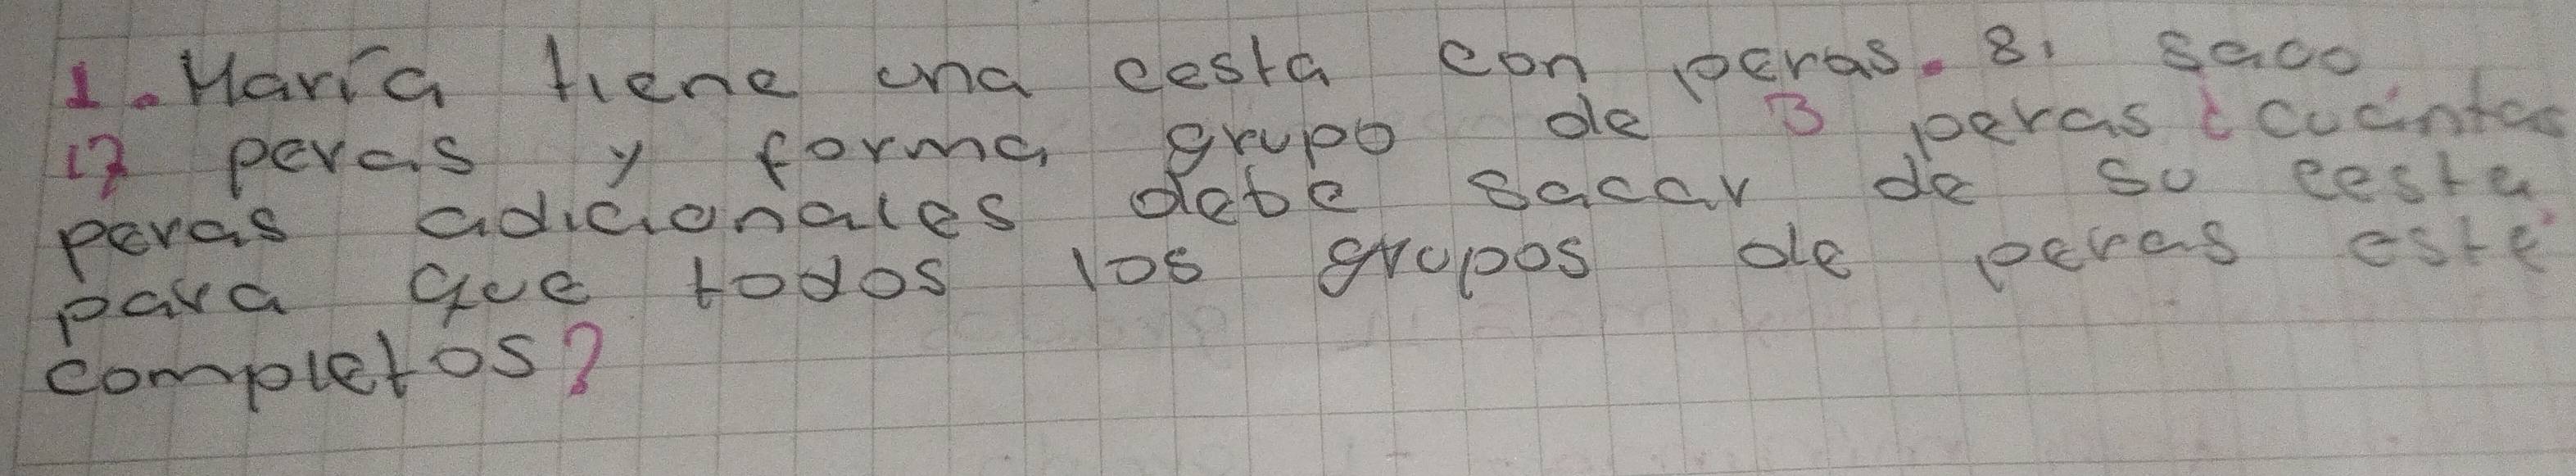 1. María tiene una cesta con peras. Si saco
17 peras y forma grupo de 3 peras ¿cuántas
peras adicionales debe sacar de su cesta
para que todos los grupos de peras esté
completos?